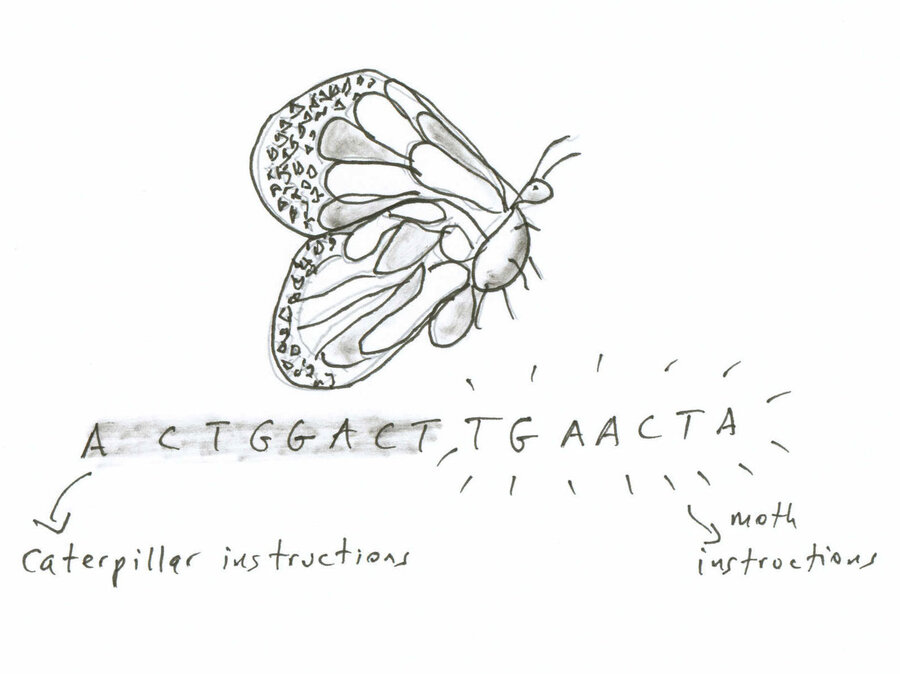 A CTGGACTTGAACTA
caterpillar instructions
moth
instructions